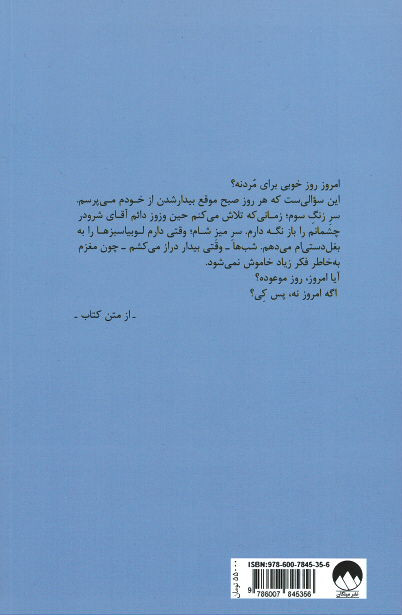 امروز روز خوبی برای مُردنه؟
این سؤالی‌ست که هر روز صبح موقع بیدارشدن از خودم می‌پرسم.
سرِ زنگِ سوم؛ زمانی‌که تلاش می‌کنم حین وزوز دائم آقای شرودر
چشمانم را باز نگه دارم. سرِ میزِ شام؛ وقتی دارم لوبیاسبزها را به
بغل‌دستی‌ام می‌دهم. شب‌ها ـ وقتی بیدار دراز می‌کشم ـ چون مغزم
به‌خاطر فکر زیاد خاموش نمی‌شود.
آیا امروز، روز موعوده؟
اگه امروز نه، پس کِی؟
ـ از متن کتاب ـ
ISBN: 978-600-7845-35-6
۵۵۰۰۰ تومان
9 786007 845356
نشر میلکان